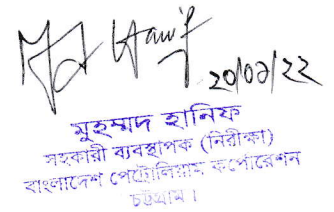 20/02/22
মুহম্মদ হানিফ
সহকারী ব্যবস্থাপক (নিরীক্ষা)
বাংলাদেশ পেট্রোলিয়াম কর্পোরেশন
চট্টগ্রাম।